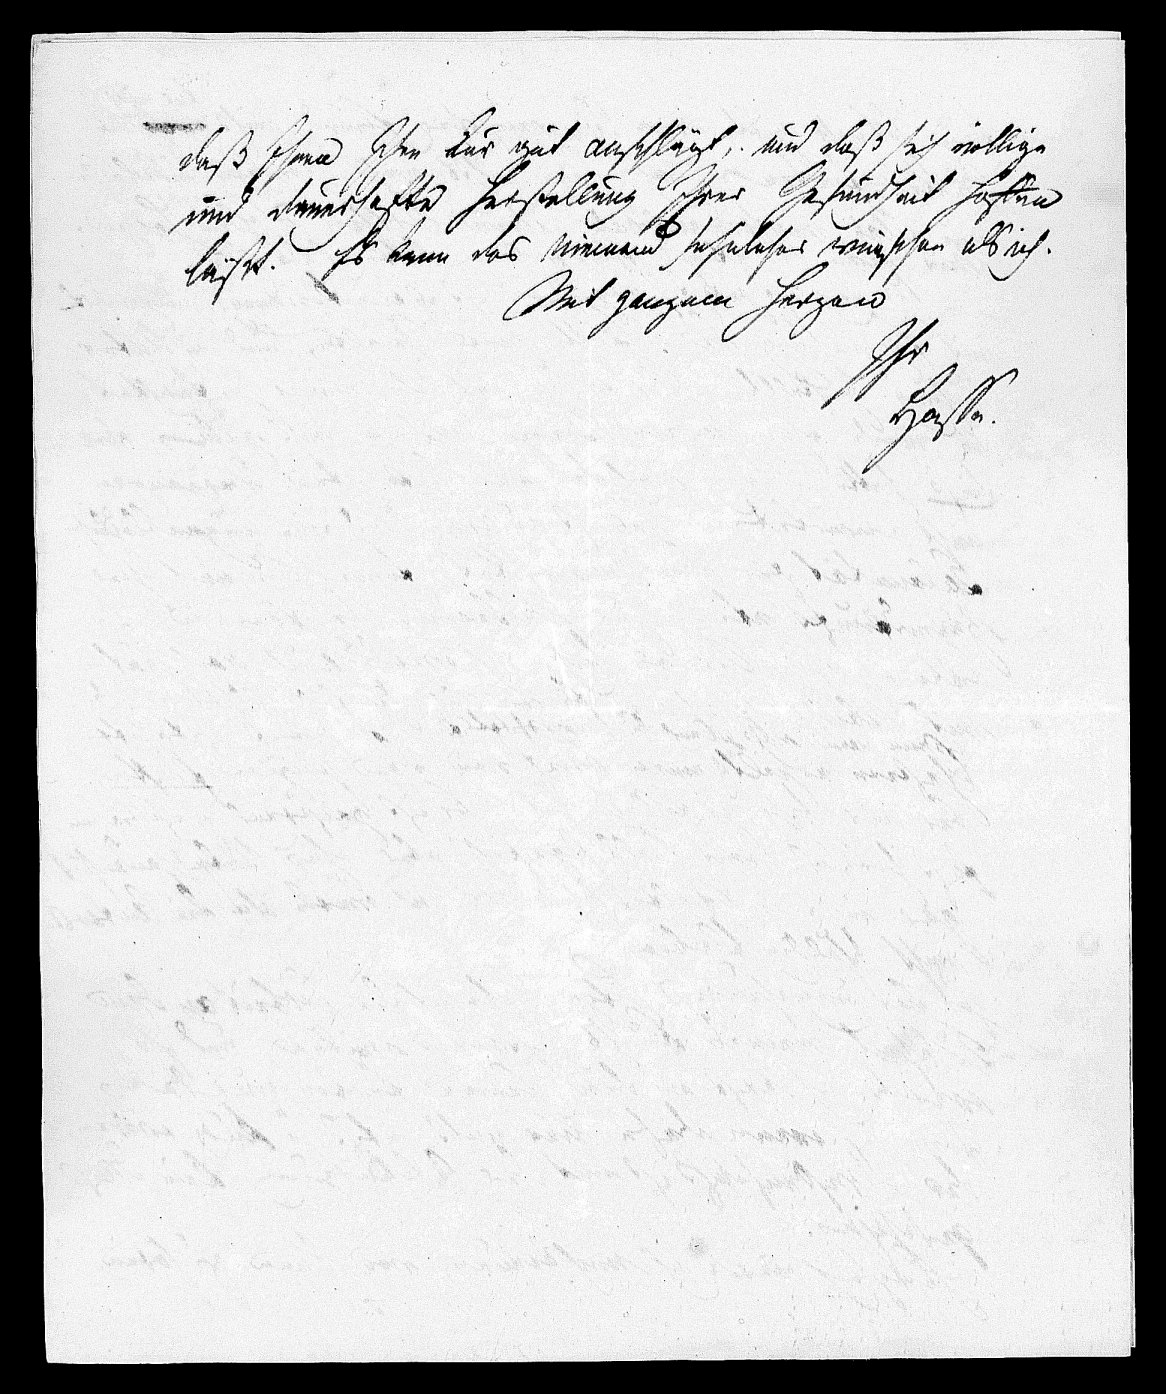 daß Ihnen Ihre Kur gut anschlägt, und daß sich völlige
und dauerhafte Herstellung Ihrer Gesundheit hoffen
läßt. Es kann das niemand sehnlicher wünschen als ich.
Mit ganzem Herzen
Ihr
Hasse.